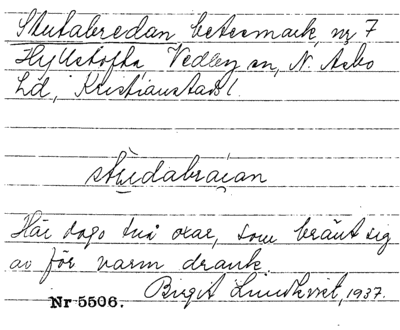 Stutabredan betesmark, nr 7
Hyllstofta Vedby sn, N. Åsbo
hd, Kristianstad l.
studabraian
Här dogo två oxar, som bränt sig
av för varm drank.
Birgit Lundkvist, 1937.
Nr 5506.